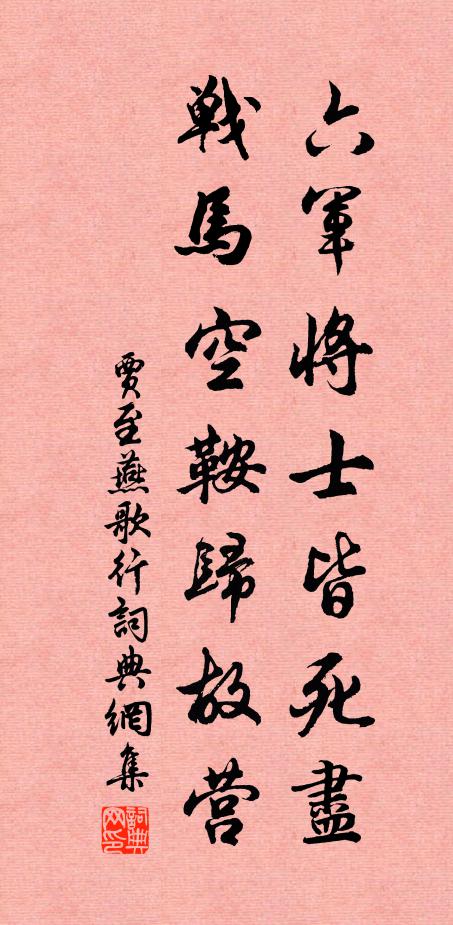 六軍將士皆死盡
戰馬空鞍歸故营
賈至燕歌行詞典網集
詞典网印